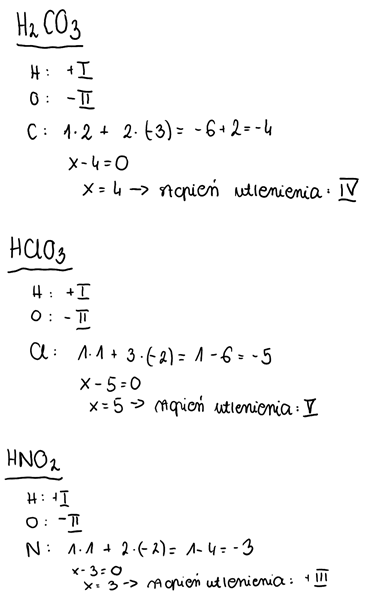 H₂CO₃
H: +I
O: -II
C: 1·2 + 2·(-3) = -6+2=-4
x-4=0
x=4 -> stopień utlenienia: IV
HClO₃
H: +I
O: -II
Cl: 1·1 + 3·(-2) = 1-6=-5
x-5=0
x=5 -> stopień utlenienia: V
HNO₂
H: +I
O: -II
N: 1·1 + 2·(-2) = 1-4=-3
x-3=0
x=3 -> stopień utlenienia: +III